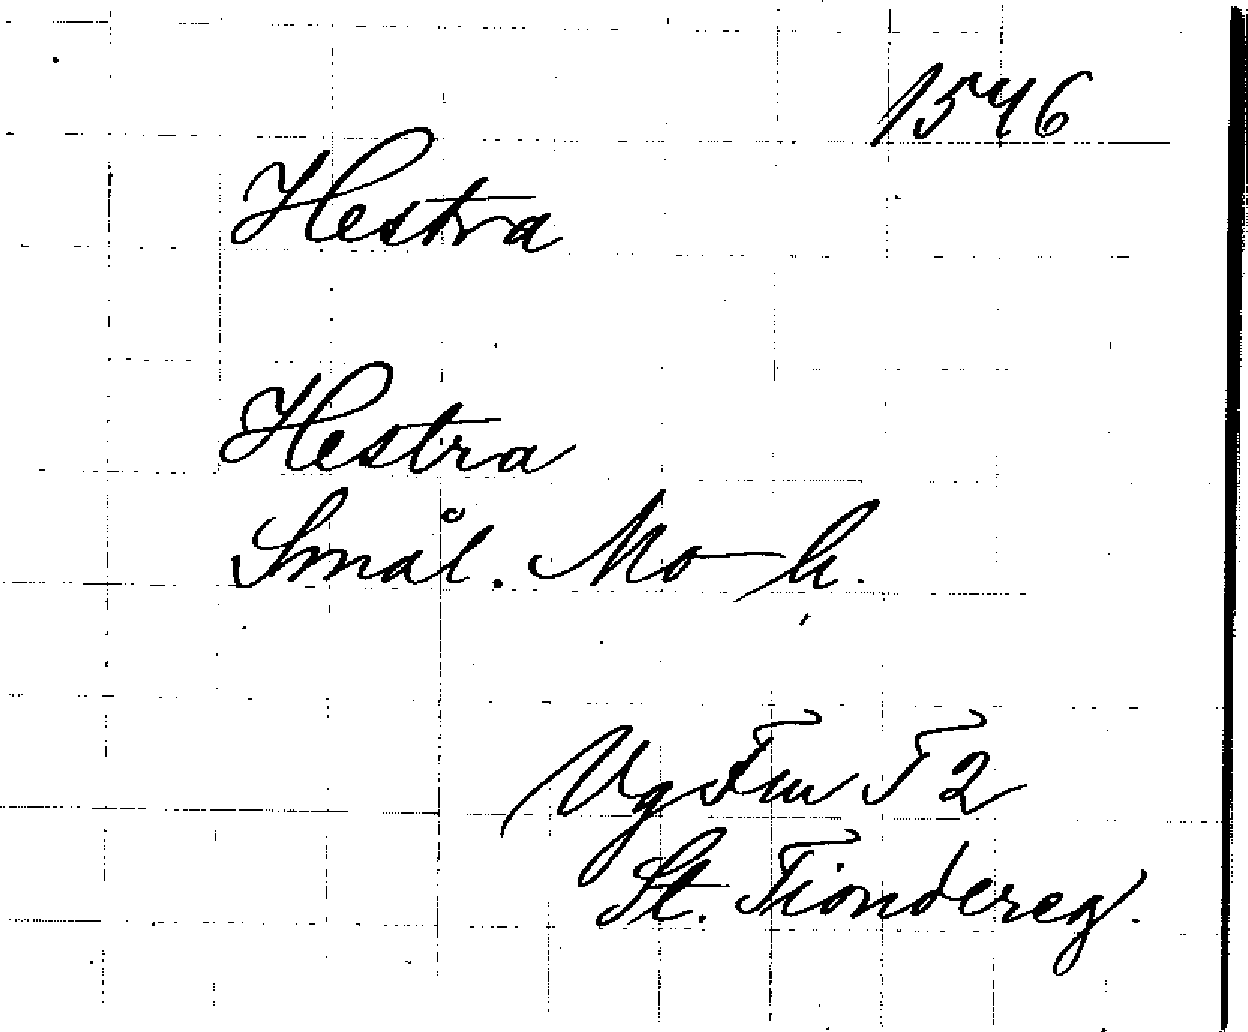 1546
Hestra
Hestra
Smål. Mo h.
Vg Fm T2
St. Tiondereg.